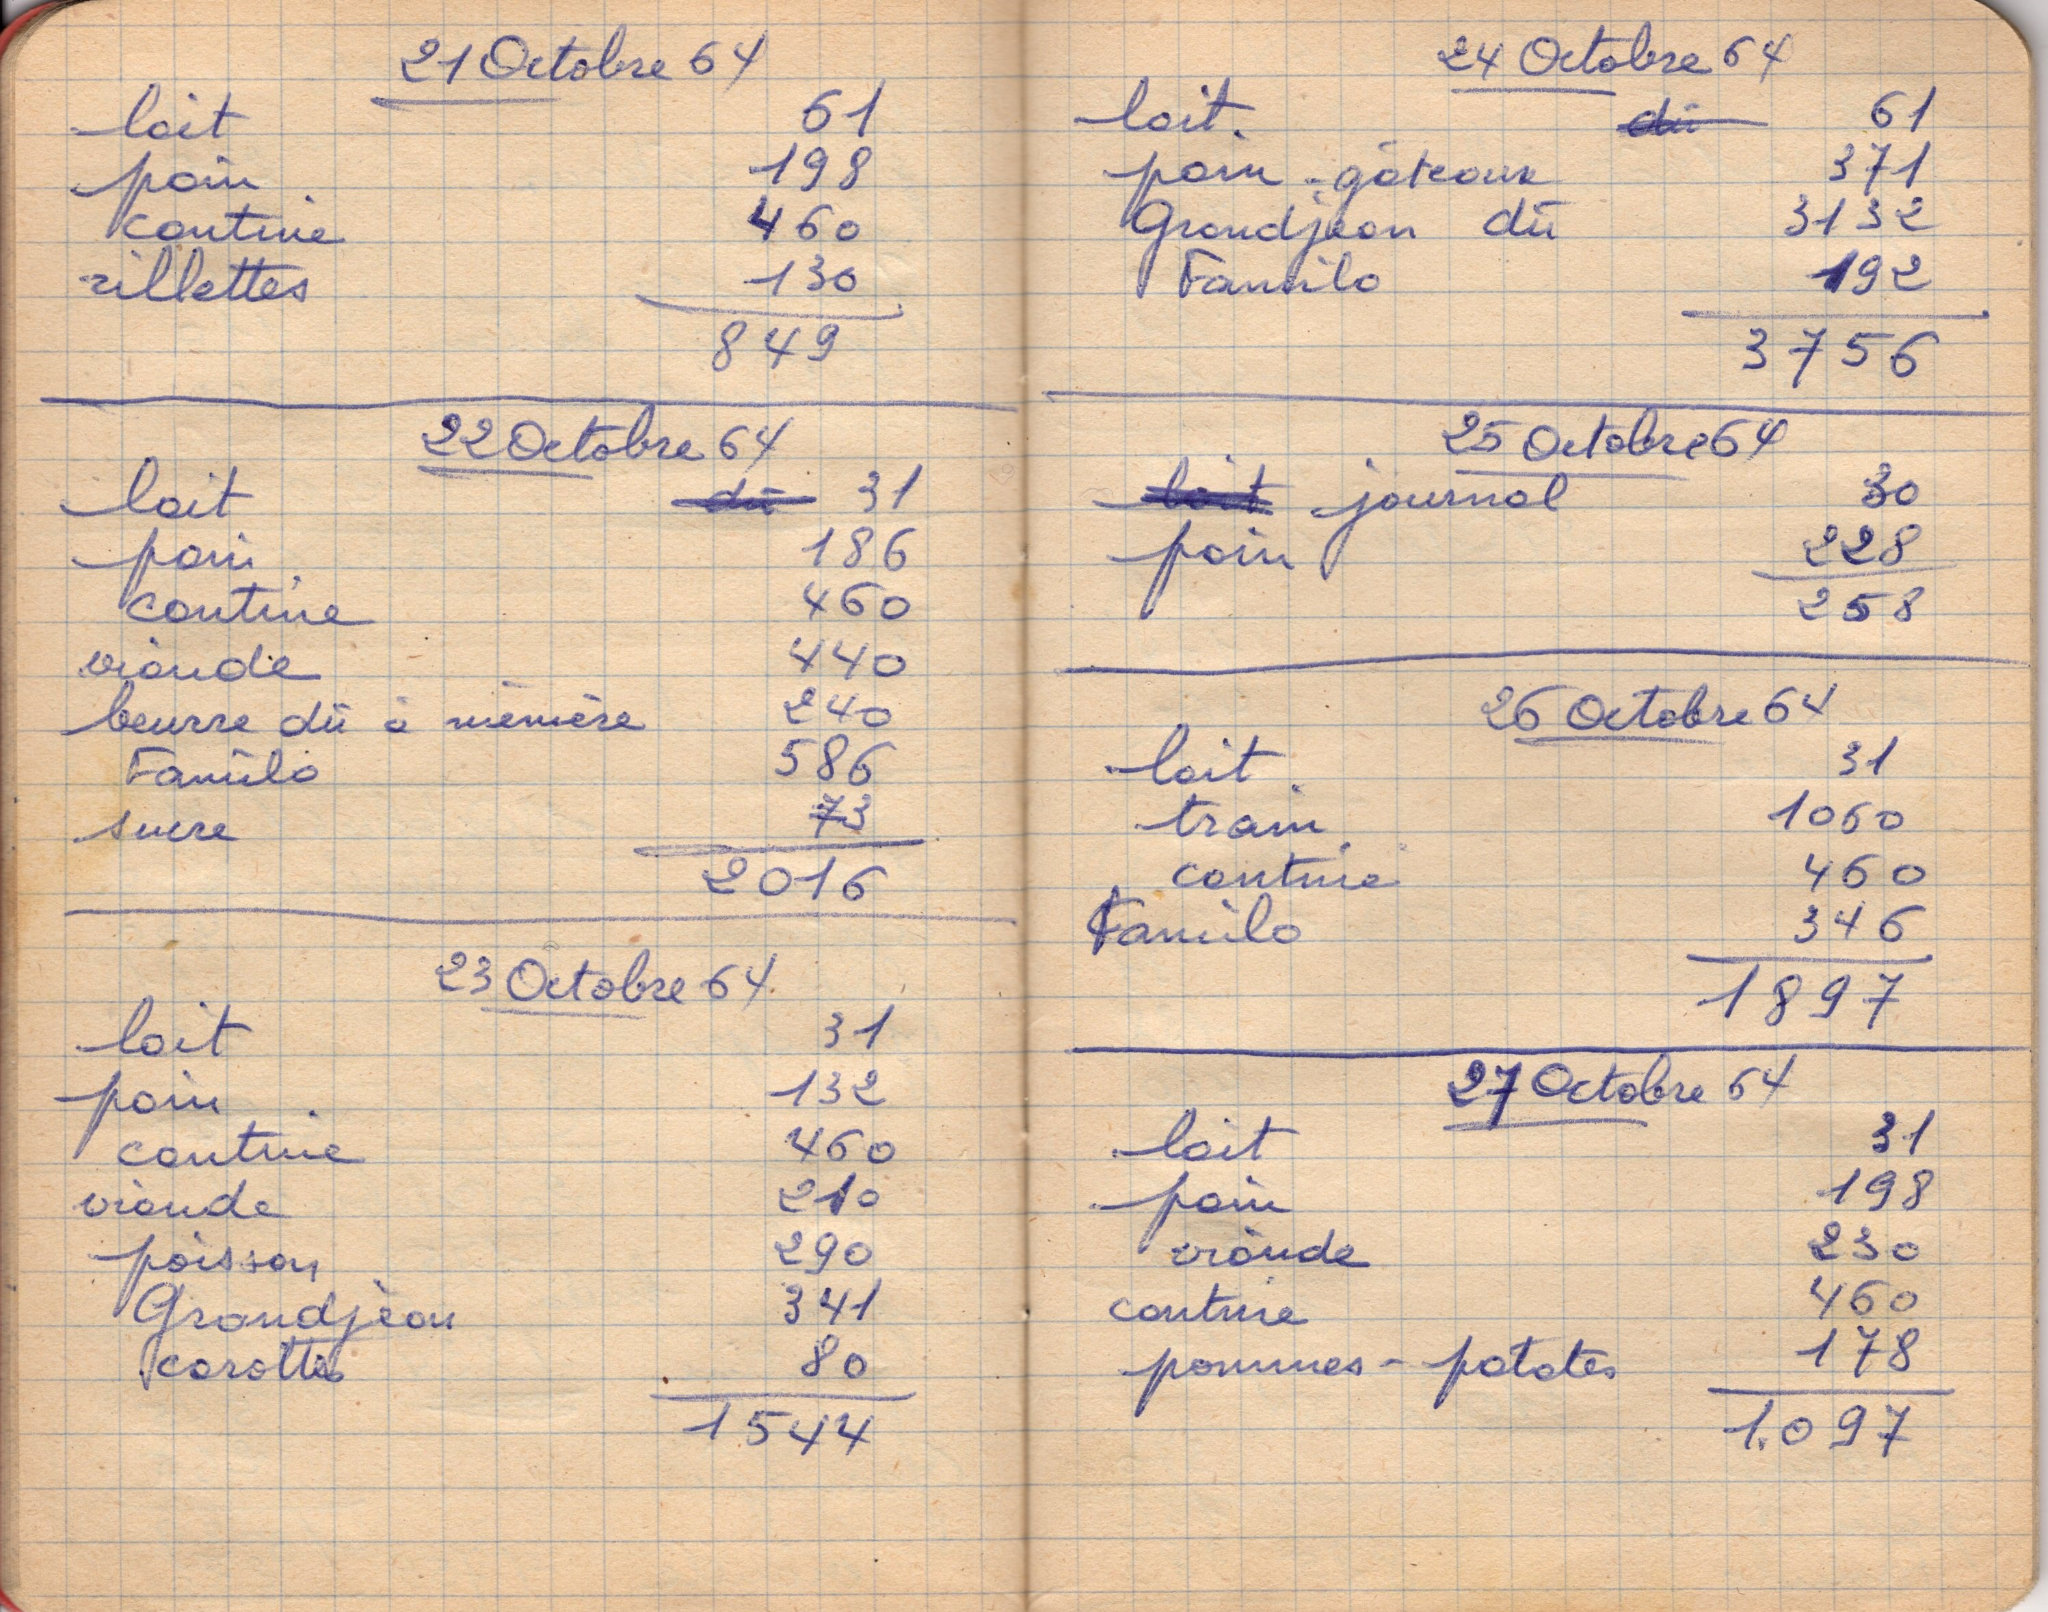 21 Octobre 64
lait 61
pain 198
cantine 460
rillettes 130
849
22 Octobre 64
lait dû 31
pain 186
cantine 460
viande 440
beurre dû à mémère 240
Familo 586
sucre 73
2016
23 Octobre 64
lait 31
pain 132
cantine 460
viande 210
poisson 290
Grandjean 341
carottes 80
1544
24 Octobre 64
lait. dû 61
pain - gâteaux 371
Grandjean dû 3132
Familo 192
3756
25 Octobre 64
lait journal 30
pain 228
258
26 Octobre 64
lait 31
train 1060
cantine 460
Familo 346
1897
27 Octobre 64
lait 31
pain 198
viande 230
cantine 460
pommes - patates 178
1.097